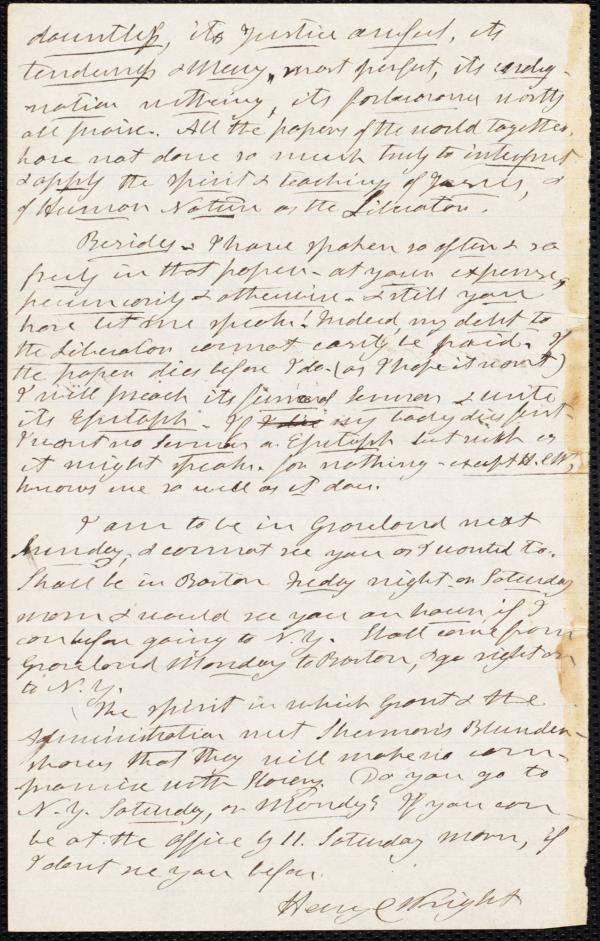 dauntless, its Justice awful, its
tenderness & Mercy, most perfect, its indig-
nation withering, its forbearance worth
all praise. All the papers of the world together,
have not done so much truly to interpret
& apply the spirit & teachings of Jesus, &
of Human Nature as the Liberator.
Besides – I have spoken so often & so
freely in that paper – at your expense,
pecuniarily & otherwise – & still you
have let me speak! Indeed, my debt to
the Liberator cannot easily be paid. If
the paper dies before I do – (as I hope it wont)
I will preach its funeral Sermon & write
its Epitaph – If my body dies first –
I want no Sermon or Epitaph but such as
it might speak – for nothing – except H.C.W.,
knows me so well as it does.
I am to be in Groveland next
Sunday, & cannot see you as I wanted to.
Shall be in Boston Friday night or Saturday
morn & would see you an hour, if I
can before going to N.Y. Shall come from
Groveland Monday to Boston, & go right on
to N.Y.
The spirit in which Grant & the
Administration met Sherman's Blunder –
shows that they will make no com-
promise with Slavery. Do you go to
N.Y. Saturday, or Monday? If you can
be at the office by 11. Saturday morn, if
I dont see you before.
Henry C Wright